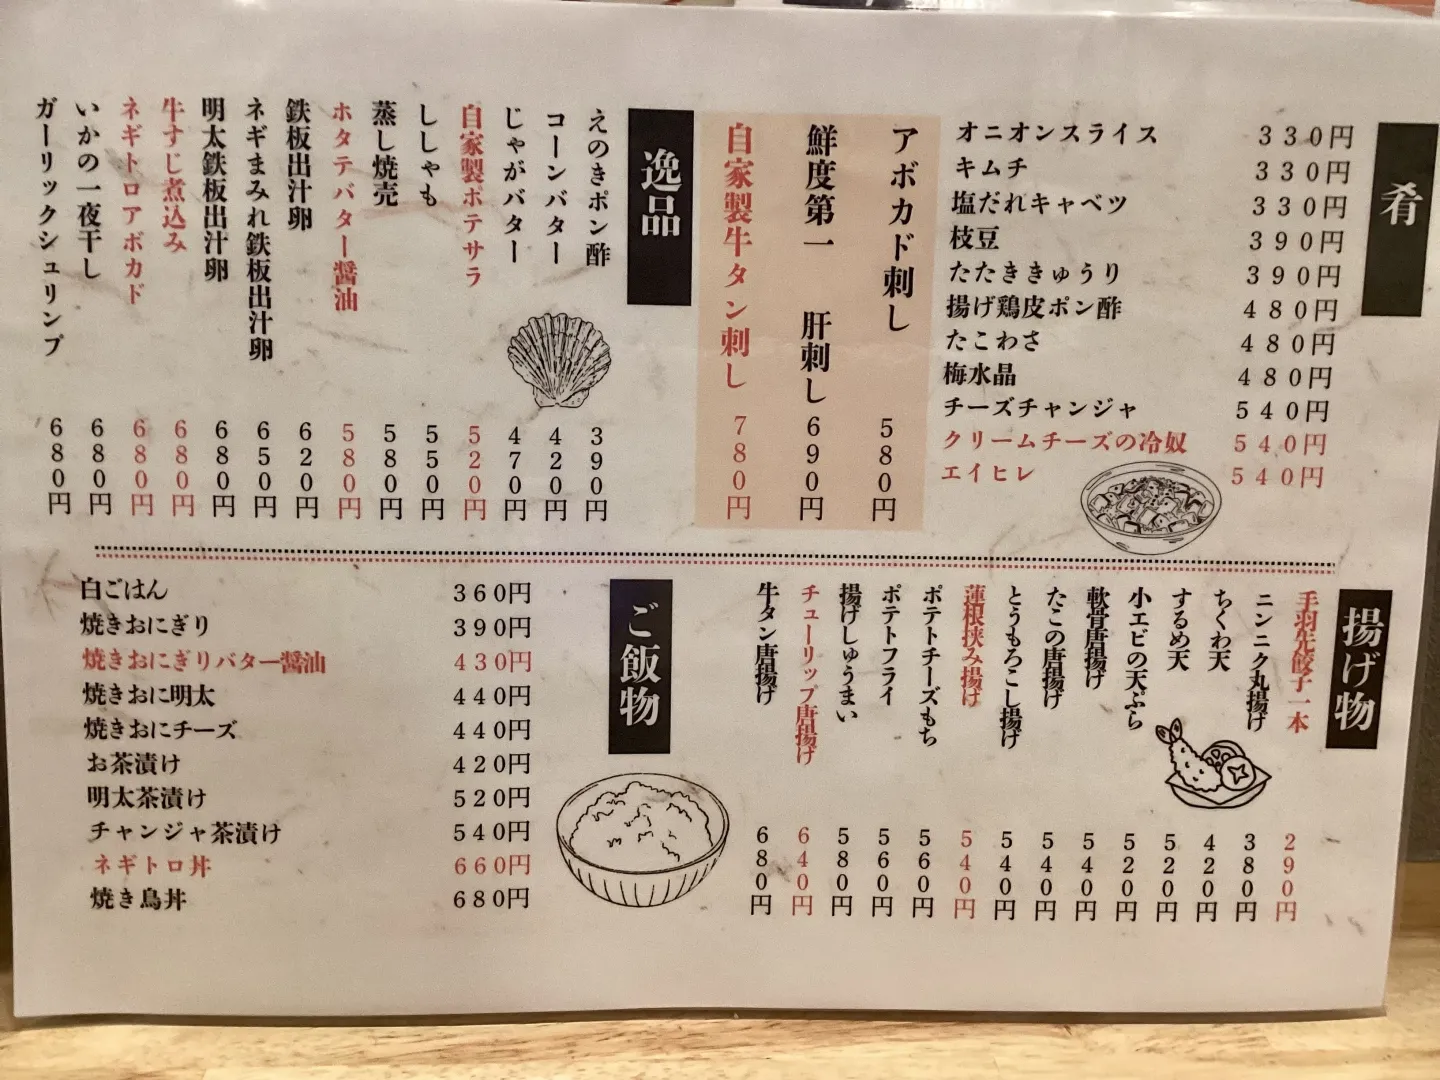 肴
オニオンスライス 330円
キムチ 330円
塩だれキャベツ 330円
枝豆 390円
たたききゅうり 390円
揚げ鶏皮ポン酢 480円
たこわさ 480円
梅水晶 480円
チーズチャンジャ 540円
クリームチーズの冷奴 540円
エイヒレ 540円
アボカド刺し 580円
鮮度第一 肝刺し 690円
自家製牛タン刺し 780円
逸品
えのきポン酢 390円
コーンバター 420円
じゃがバター 470円
自家製ポテサラ 520円
ししゃも 550円
蒸し焼売 580円
ホタテバター醤油 580円
鉄板出汁卵 620円
ネギまみれ鉄板出汁卵 650円
明太鉄板出汁卵 680円
牛すじ煮込み 680円
ネギトロアボカド 680円
いかの一夜干し 680円
ガーリックシュリンプ 680円
揚げ物
手羽先餃子一本 290円
ニンニク丸揚げ 380円
ちくわ天 420円
するめ天 520円
小エビの天ぷら 520円
軟骨唐揚げ 540円
たこの唐揚げ 540円
とうもろこし揚げ 540円
蓮根挟み揚げ 540円
ポテトチーズもち 560円
ポテトフライ 560円
揚げしゅうまい 580円
チューリップ唐揚げ 640円
牛タン唐揚げ 680円
ご飯物
白ごはん 360円
焼きおにぎり 390円
焼きおにぎりバター醤油 430円
焼きおに明太 440円
焼きおにチーズ 440円
お茶漬け 420円
明太茶漬け 520円
チャンジャ茶漬け 540円
ネギトロ丼 660円
焼き鳥丼 680円